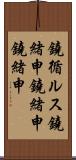 鏡循ルス鏡
緒申鏡緒申
鏡緒申